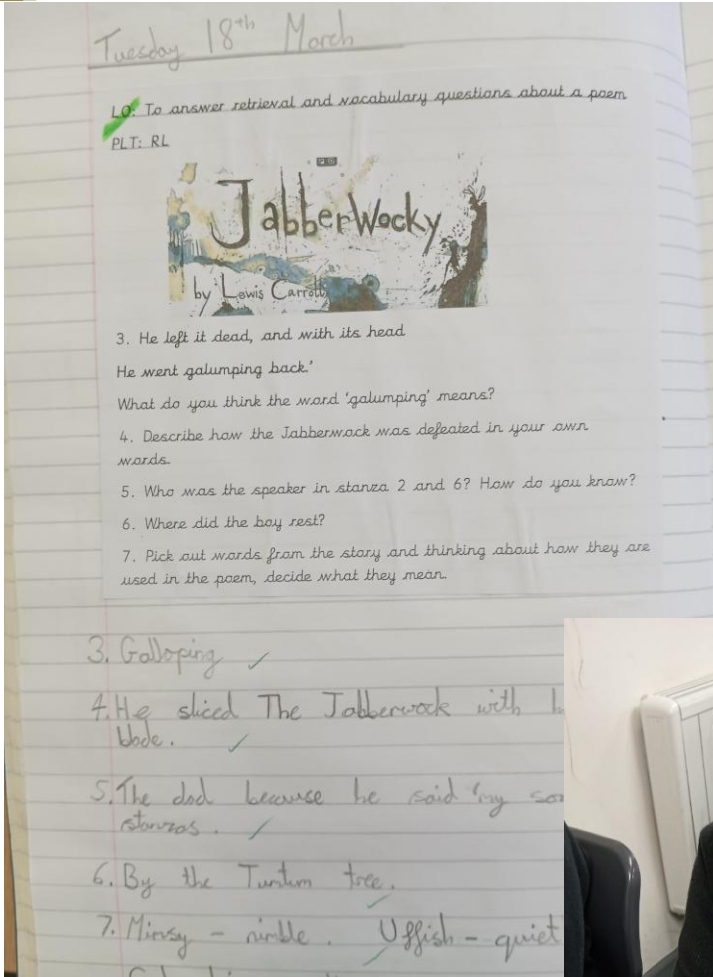 Tuesday 18th March
LO: To answer retrieval and vocabulary questions about a poem
PLT: RL
JabberWocky
by Lewis Carroll
3. He left it dead, and with its head
He went galumping back.'
What do you think the word 'galumping' means?
4. Describe how the Jabberwock was defeated in your own
words.
5. Who was the speaker in stanza 2 and 6? How do you know?
6. Where did the boy rest?
7. Pick out words from the story and thinking about how they are
used in the poem, decide what they mean.
3. Galloping
4. He sliced The Jabberwock with
blade.
5. The dad because he said 'my
stanzas.
6. By the Tumtum tree.
7. Mimsy - nimble. Uffish - quiet